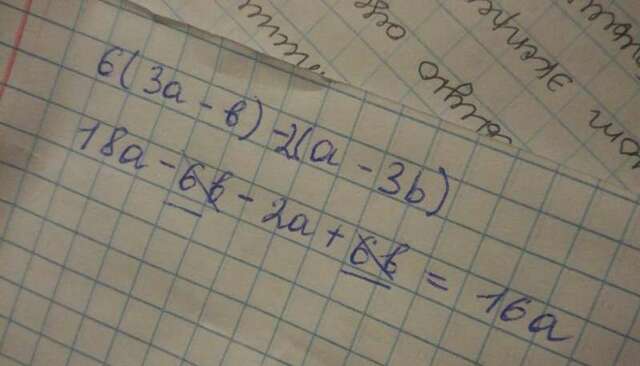 6(3a - b) - 2(a - 3b)
18a - 6b - 2a + 6b = 16a